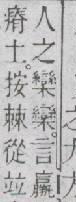 人之欒欒。言羸
瘠土。按棘從並